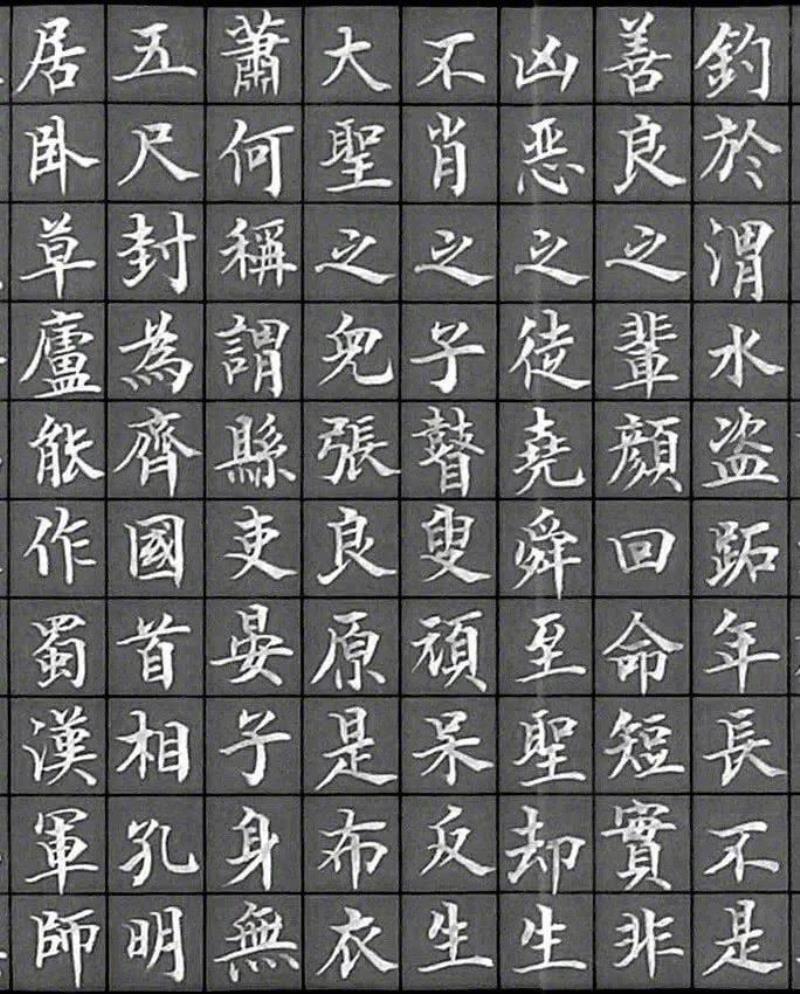 釣於渭水盗跖年長不是
善良之輩顏回命短實非
凶恶之徒堯舜至聖却生
不肖之子瞽叟頑呆反生
大聖之兒張良原是布衣
蕭何稱謂縣吏晏子身無
五尺封為齊國首相孔明
居卧草廬能作蜀漢軍師